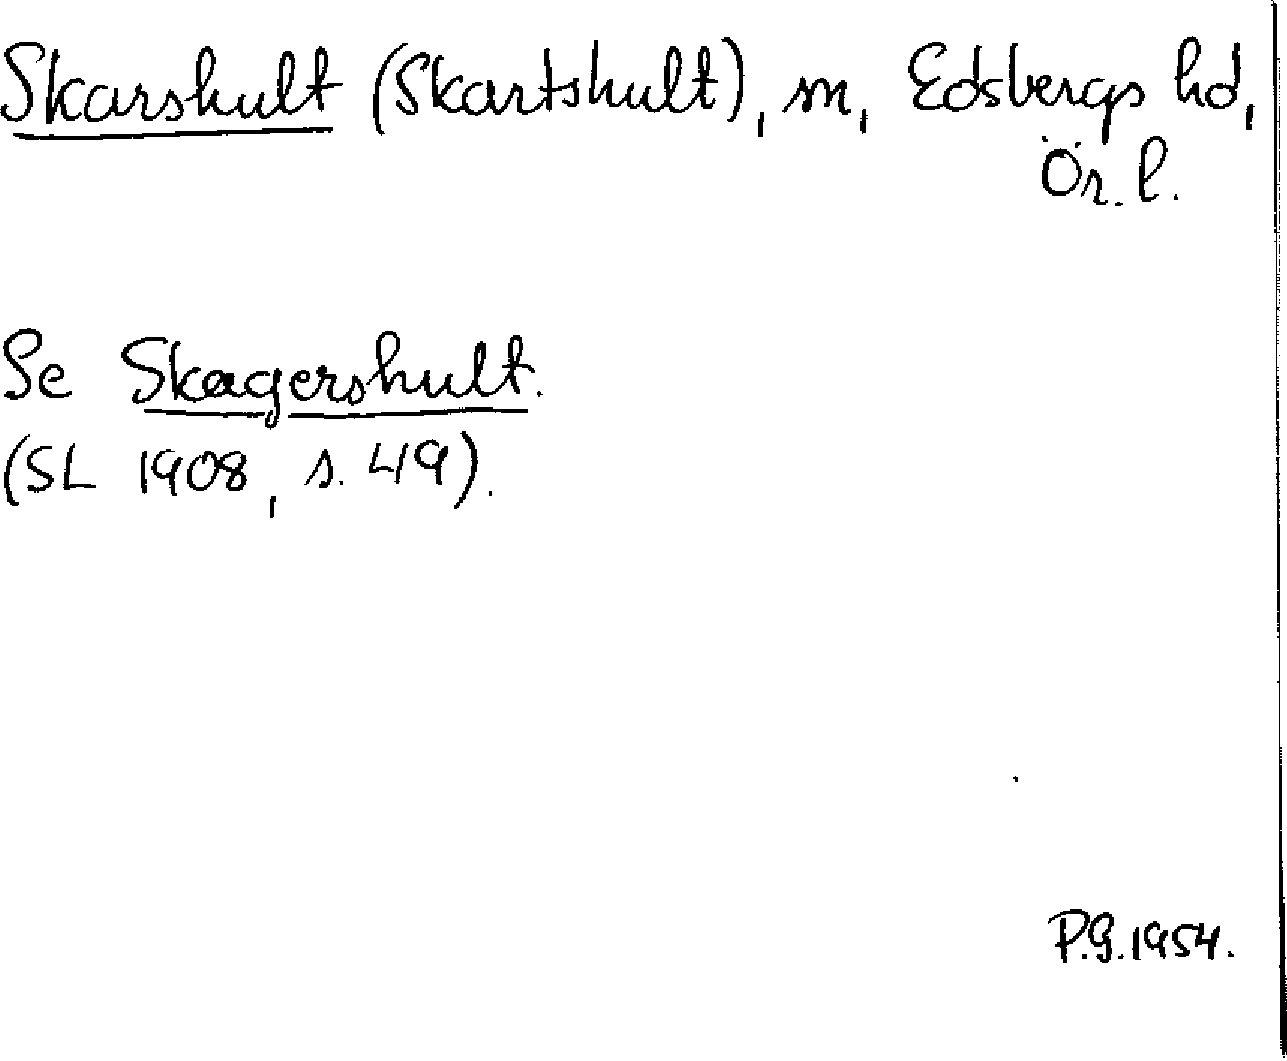 Skarshult (Skartshult), sn, Edsbergs hd,
Ör. l.
Se Skagershult.
(SL 1908, s. 49).
P.G. 1954.